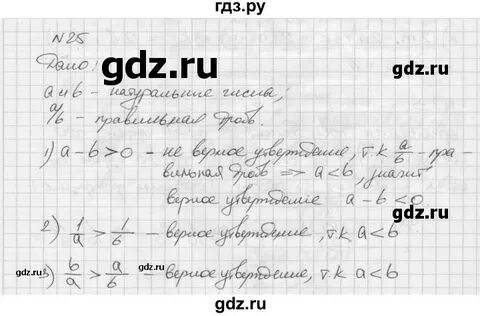 гдз.ру
№25
Дано:
gdz.ru
a и b - натуральные числа;
a/b - правильная дробь.
1) a - b > 0 - не верное утверждение, т.к a/b - пра-
вильная дробь => a < b, значит
верное утверждение a - b < 0
gdz.ru
gdz.ru
2) 1/a > 1/b - верное утверждение, т.к a < b
gdz.ru
gdz.ru
gdz.ru
3) b/a > a/b - верное утверждение, т.к a < b
gdz.ru